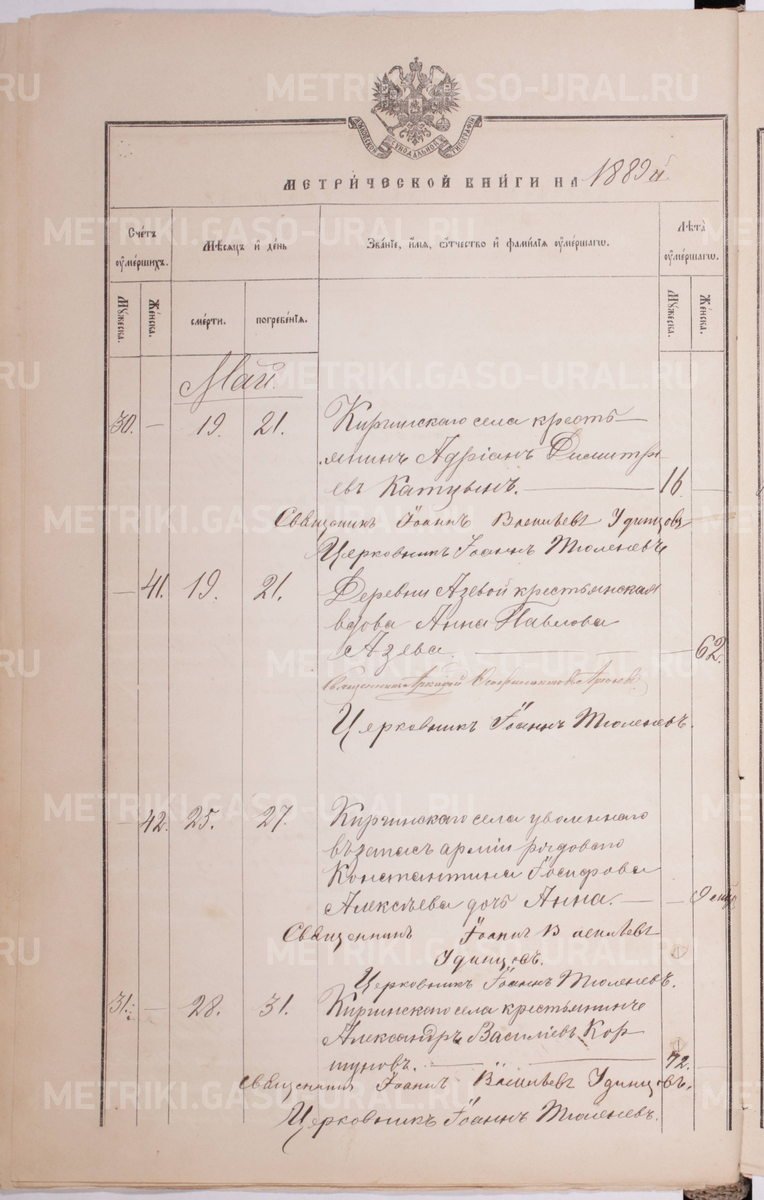 МЕТРИЧЕСКОЙ КНИГИ НА 1889 й
Счетъ оумершихъ.
Мѣсяцъ и день
Званіе, имя, отчество и фамилія оумершагѡ.
Лѣта оумершагѡ.
Мꙋжеска.
Женска.
смерти.
погребенія.
Мꙋжеска.
Женска.
Май
30. — 19. 21. Киргинскаго села кресть-
янинъ Адріанъ Димитрі
евъ Катцынъ. — 16 —
Священикъ Іоаннъ Васильевъ Удинцовъ
Церковникъ Іоаннъ Тюленевъ
— 41. 19. 21. Деревни Азевой крестьянская
вдова Анна Павлова
Азева. — — 62.
Священникъ Аркадій
Церковникъ Іоаннъ Тюленевъ.
— 42. 25. 27. Киргинскаго села уволеннаго
въ запасъ арміи рядоваго
Константина Іосифова
Алексѣева дочь Анна. — —
Священникъ Іоаннъ Васильевъ
Удинцовъ.
Церковникъ Іоаннъ Тюленевъ.
31. — 28. 31. Киргинскаго села крестьянинъ
Александръ Василіевъ Кор
шуновъ. — 72. —
Священникъ Іоаннъ Васильевъ Удинцовъ.
Церковникъ Іоаннъ Тюленевъ.
METRIKI.GASO-URAL.RU